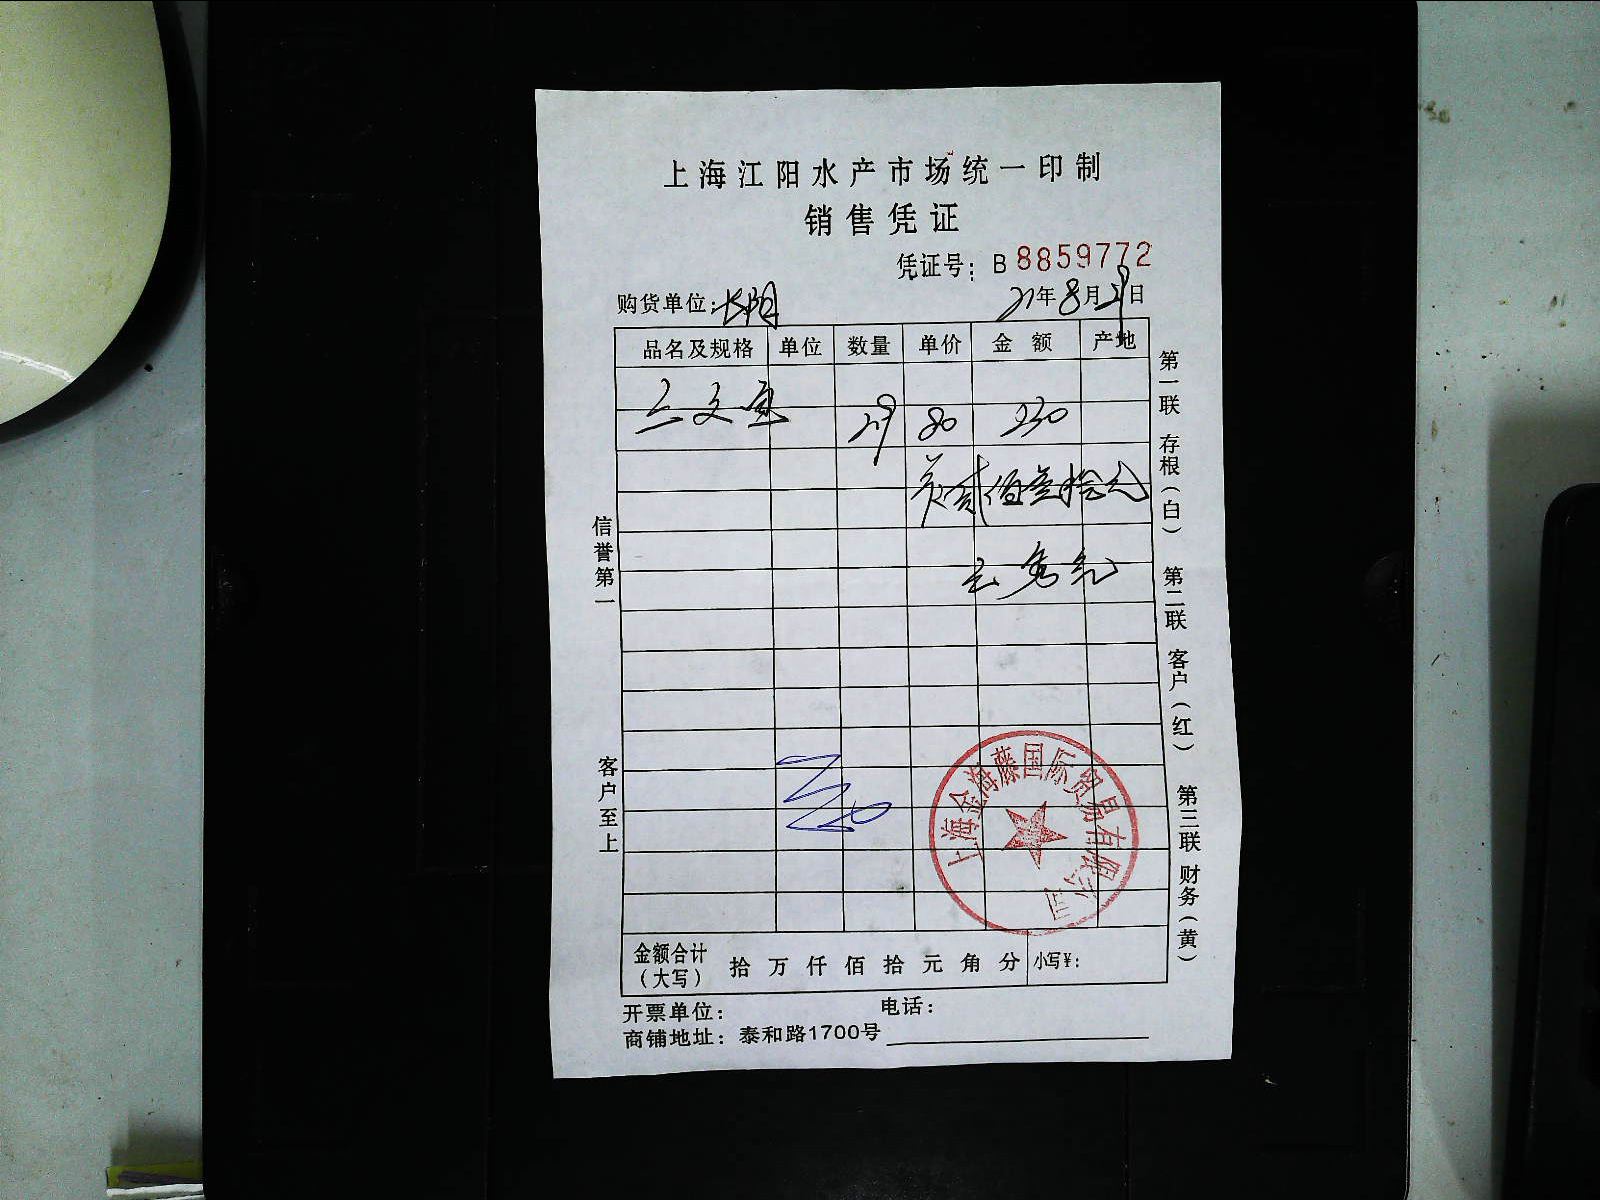 上海江阳水产市场统一印制
销售凭证
凭证号：B 8859772
购货单位：长阳 21年8月29日
品名及规格 单位 数量 单价 金额 产地
三文鱼 29 80 230
共贰佰叁拾元
信誉第一
客户至上
第一联 存根（白） 第二联 客户（红） 第三联 财务（黄）
上海金海藤国际贸易有限公司
金额合计（大写） 拾 万 仟 佰 拾 元 角 分 小写¥：
开票单位： 电话：
商铺地址：泰和路1700号